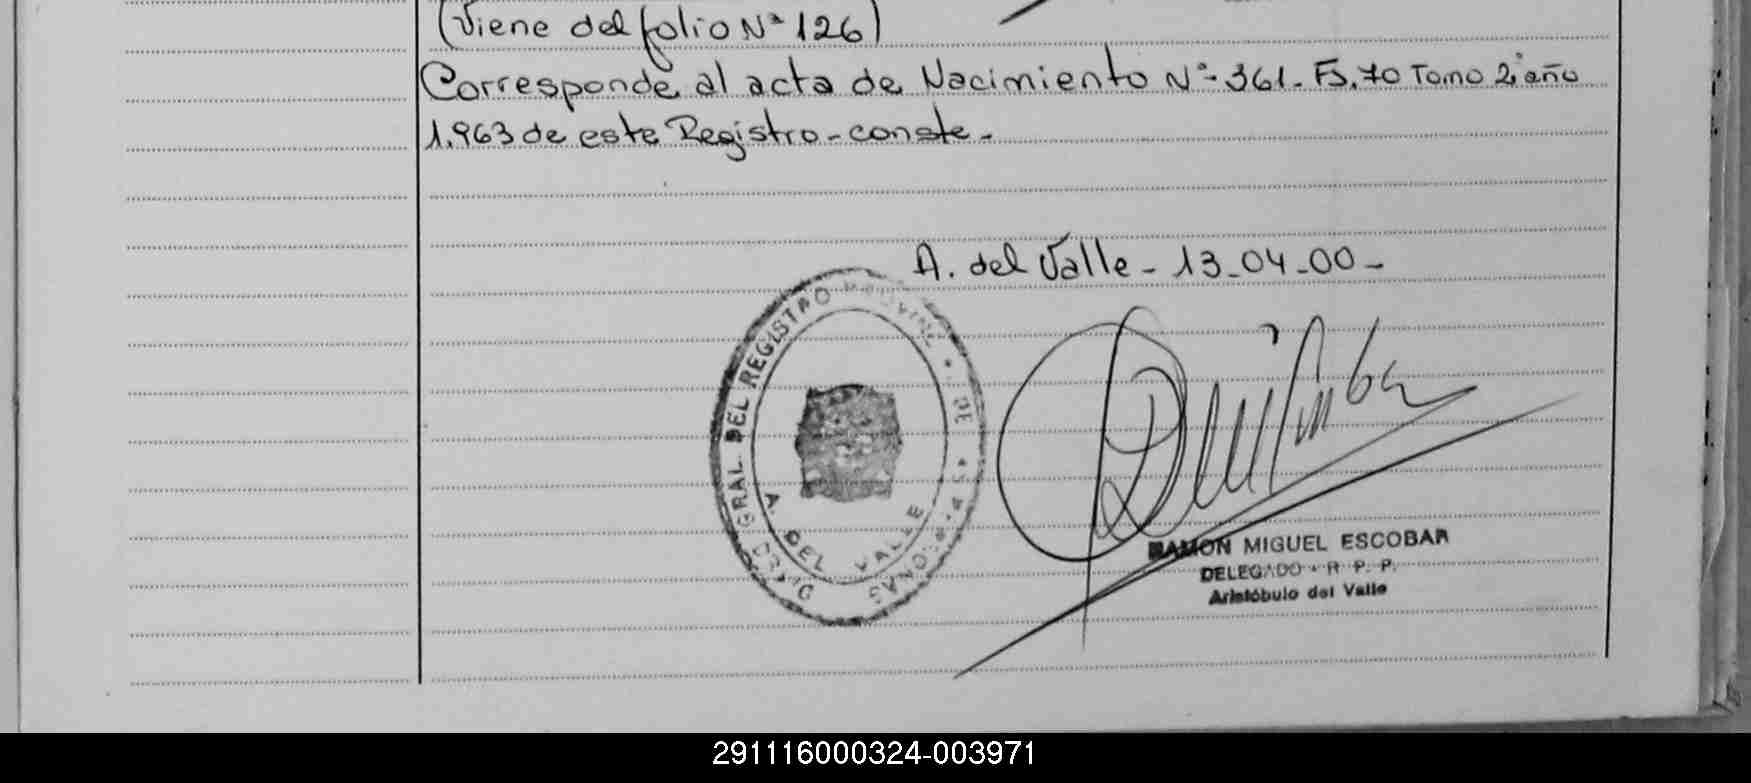 (Viene del folio Nº 126)
Corresponde al acta de Nacimiento Nº- 361- Fs. 70 Tomo 2º año
1.963 de este Registro - conste -
A. del Valle - 13-04-00-
GRAL. DEL REGISTRO PROVINC. DE
A. DEL VALLE
RAMON MIGUEL ESCOBAR
DELEGADO - R. P. P.
Aristóbulo del Valle
291116000324-003971